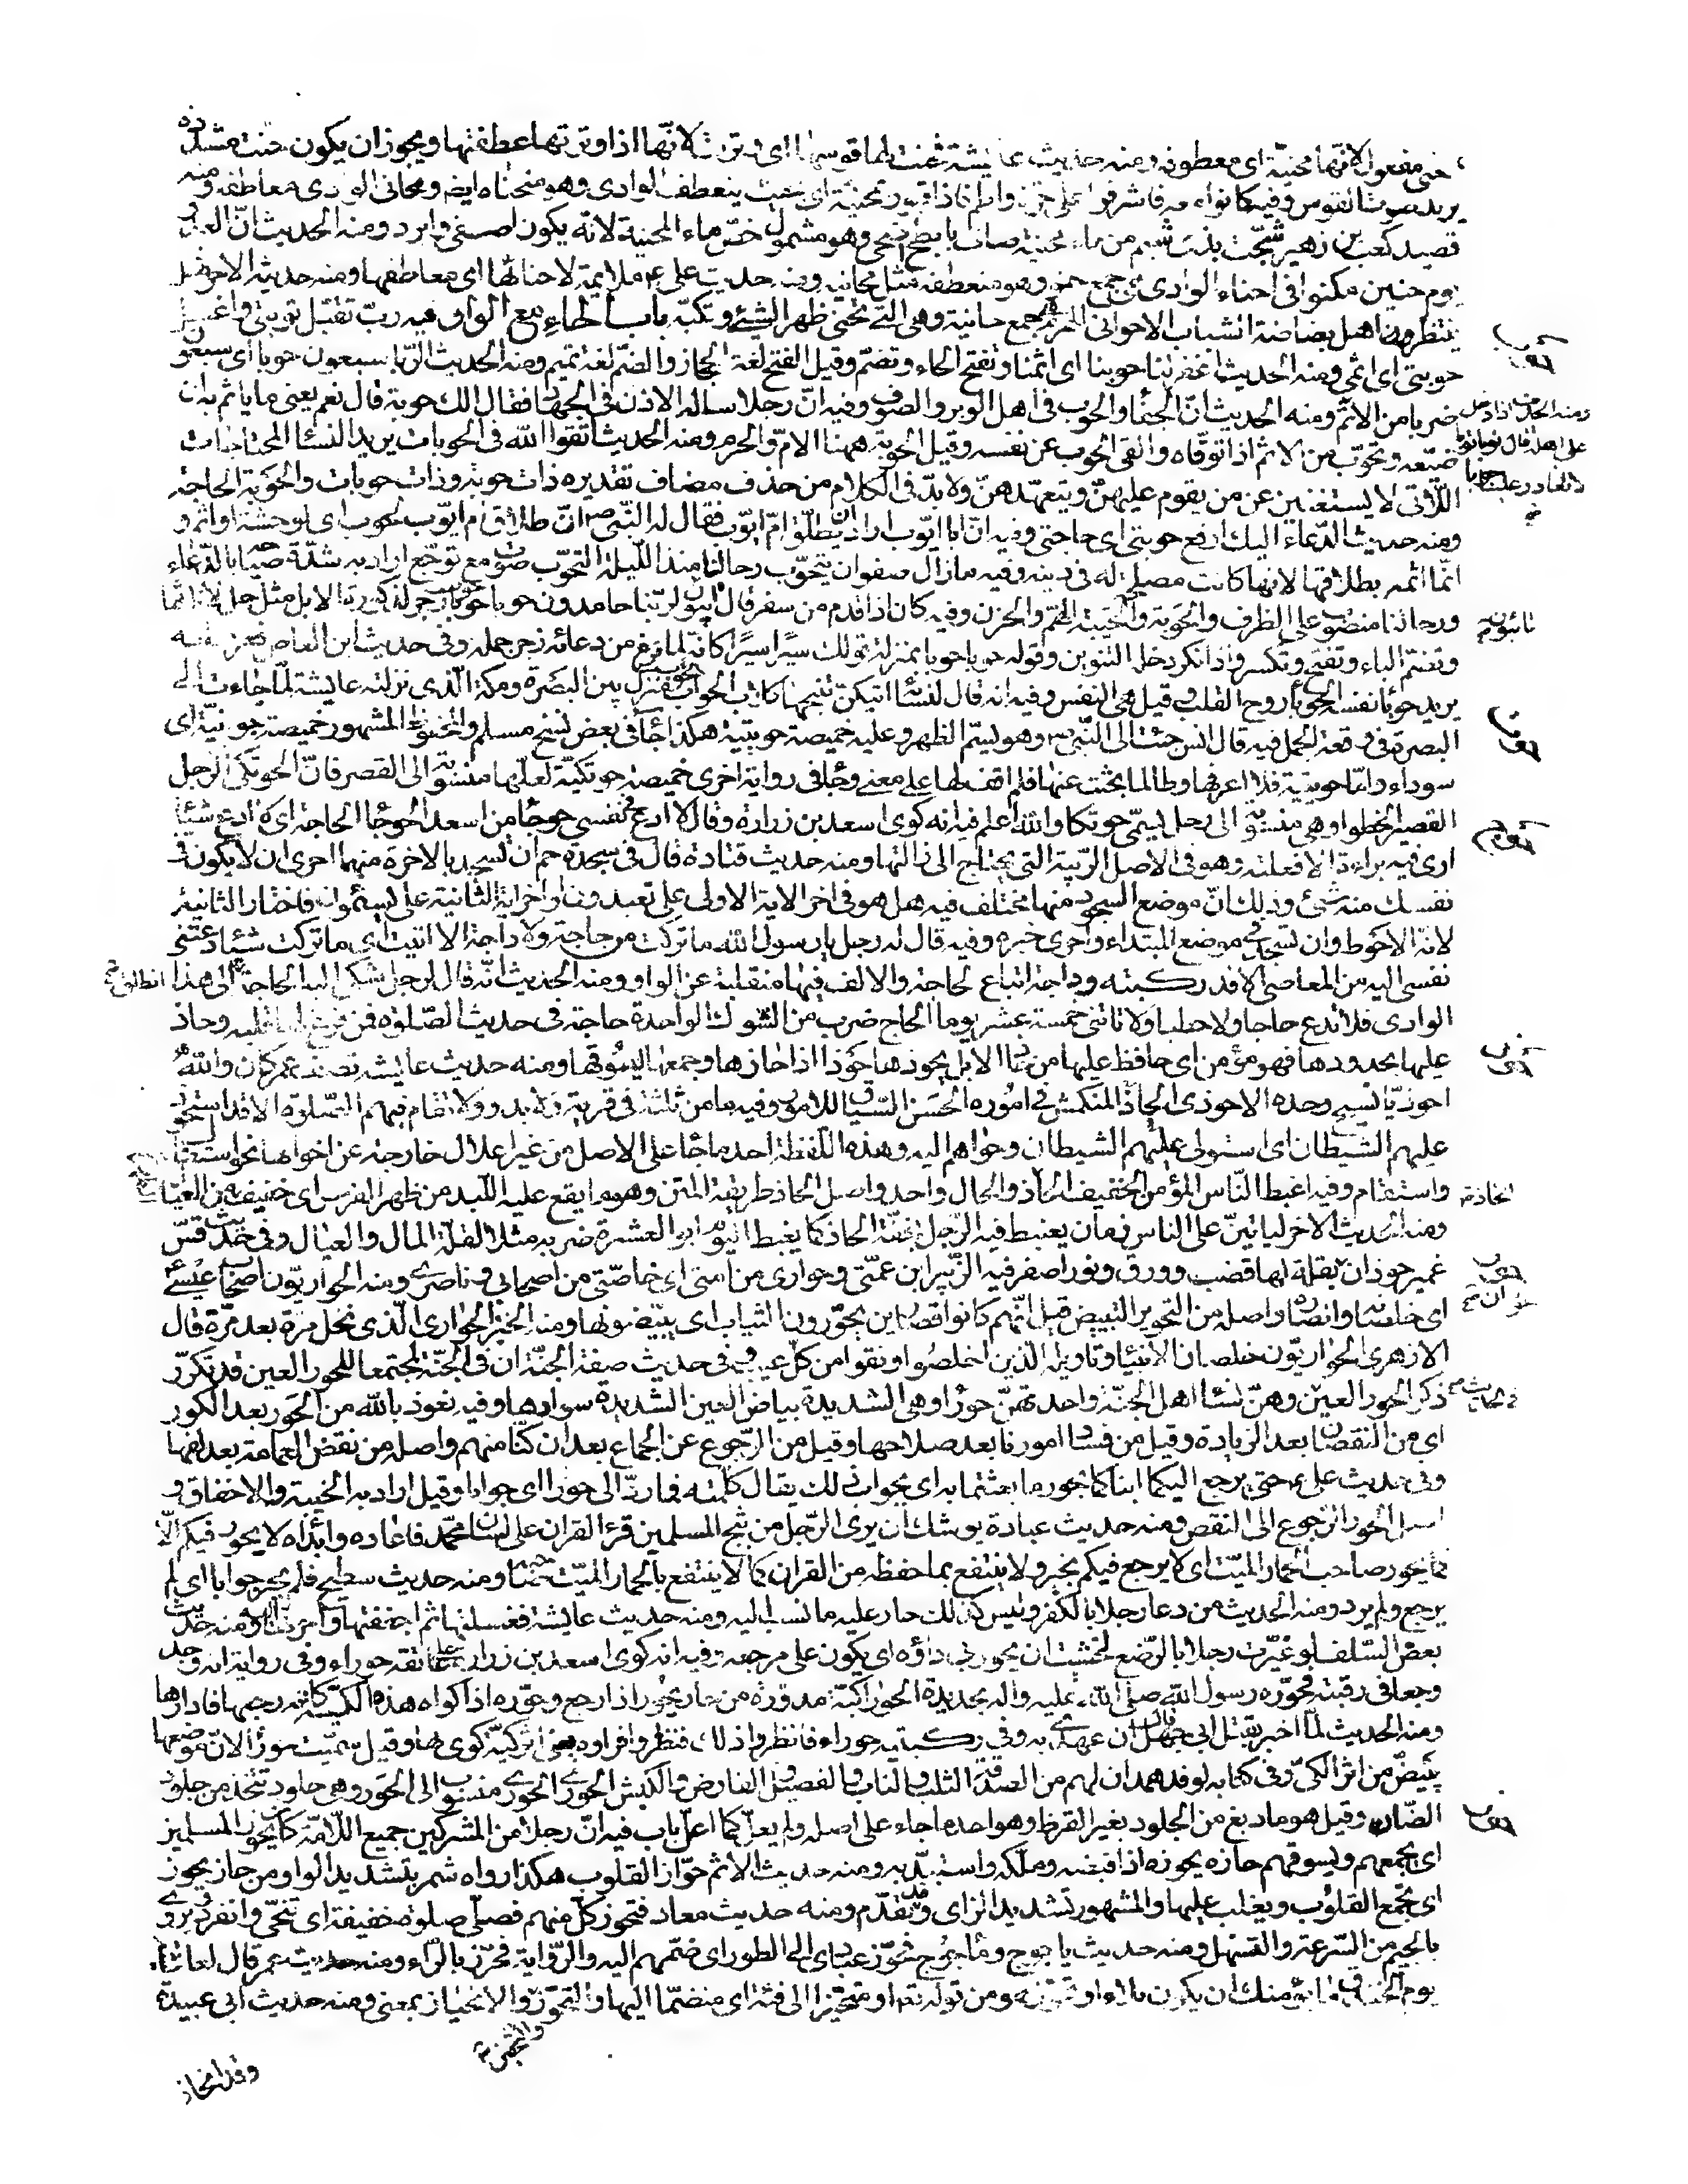 حنى مفعولا لانها محنية اى معطوفة ومنه حديث عايشة فحنت لها قوسها اى وترت لانها اذا وترتها عطفتها ويجوز ان يكون حنت مشددة
يريد صوت القوس وفيه كانوا معه فاشرفوا على حرة واقم فاذا قبور بمحنية اى بحيث ينعطف الوادى وهو منحناه ايضا ومحانى الوادى معاطفه ومنه
قصيد كعب بن زهير شجت بذى شبم من ماء محنية صاف بابطح اضحى وهو مشمول خص ماء المحنية لانه يكون اصفى وابرد ومنه الحديث ان العدو
يوم حنين مكنوا فى احناء الوادى هى جمع حنو وهو منعطفه مثل محانيه ومنه حديث على ع ملايمة لاحنائها اى معاطفها ومنه حديثه الاخر فهل
ينتظر اهل بضاضة الشباب الا حوانى الهرم جمع حانية وهى التى تحنى ظهر الشئ وتكبه باب الحاء مع الواو فيه رب تقبل توبتى واغسل
حوبتى اى اثمى ومنه الحديث اغفر لنا حوبنا اى اثمنا وتفتح الحاء وتضم وقيل الفتح لغة الحجاز والضم لغة تميم ومنه الحديث الربا سبعون حوبا اى سبعون
ضربا من الاثم ومنه الحديث ان الجفا والحوب فى اهل الوبر والصوف وفيه ان رجلا ساله الاذن فى الجهاد فقال الك حوبة قال نعم يعنى ما ياثم به ان
ضيعه وتحوب من الاثم اذا توقاه والقى الحوب عن نفسه وقيل الحوبة ههنا الام والحرم ومنه الحديث اتقوا الله فى الحوبات يريد النسا المحتاجات
اللاتى لا يستغنين عن من يقوم عليهن ويتعهدهن ولا بد فى الكلام من حذف مضاف تقديره ذات حوبة وذات حوبات والحوبة الحاجة
ومنه حديث الدعاء اليك ارفع حوبتى اى حاجتى وفيه ان ابا ايوب اراد ان يطلق ام ايوب فقال له النبى ص ان طلاق ام ايوب لحوب اى لوحشة او اثم و
انما اثمه بطلاقها لانها كانت مصلحة له فى دينه وفيه ما زال صفوان يتحوب رحالنا منذ الليلة التحوب صوت مع توجع اراد به شدة صياحه بالدعاء
ورحالنا منصوب على الظرف والحوبة والحيبة الهم والحزن وفيه كان اذا قدم من سفر قال ايبون لربنا حامدون حوبا حوبا حوب زجر لذكورة الابل مثل حل لاناثها
وتضم الباء وتفتح وتكسر واذا نكر دخله التنوين وقوله حوبا حوبا بمنزلة قولك سيرا سيرا كانه لما فرغ من دعائه زجر جمله وفى حديث ابن العاص فعرف انه
يريد حوبا نفسه الحوبا روح القلب وقيل هى النفس وفيه انه قال لنسائه ايتكن تنبحها كلاب الحواب الحواب منزل بين البصرة ومكة الذى نزلته عايشة لما جاءت الى
البصرة فى وقعة الجمل فيه قال انس جئت الى النبى ص وهو يسم الظهر وعليه خميصة حويتية هكذا جا فى بعض نسخ مسلم والمحفوظ المشهور خميصة جونية اى
سوداء واما حويتية فلا اعرفها وطالما بحثت عنها فلم اقف لها على معنى وجا فى رواية اخرى خميصة حوتكية لعلها منسوبة الى القصر فان الحوتكى الرجل
القصير الخطو او هى منسوبة الى رجل يسمى حوتكا والله اعلم فيه انه كوى اسعد بن زرارة وقال لا ادع فى نفسى حوجا من اسعد الحوجا الحاجة اى لا ادع شيئا
ارى فيه براءة الا فعلته وهو فى الاصل الريبة التى يحتاج الى ازالتها ومنه حديث قتادة قال فى سجدة حم ان تسجد بالاخرة منهما احرى ان لا يكون فى
نفسك منه شئ وذلك ان موضع السجود منها مختلف فيه هل هو فى اخر الاية الاولى على تعبدون او اخر اية الثانية على يسئمون فاختار الثانية
لانه الاحوط وان تسجد فى موضع المبتداء واحرى خبره وفيه قال له رجل يا رسول الله ما تركت من حاجة ولا داجة الا اتيت اى ما تركت شيئا دعتنى
نفسى اليه من المعاصى الا قد ركبته وداجة اتباع لحاجة والالف فيها منقلبة عن الواو ومنه الحديث انه قال لرجل شكى اليه الحاجة انطلق الى هذا
الوادى فلا تدع حاجا ولا حطبا ولا تاتنى خمسة عشر يوما الحاج ضرب من الشوك الواحدة حاجة فى حديث الصلوة فمن فرغ لها قلبه وحاذ
عليها بحدودها فهو مؤمن اى حافظ عليها من حاذ الابل يحوذها حوذا اذا حازها وجمعها ليسوقها ومنه حديث عايشة تصف عمر كان والله
احوذيا نسيج وحده الاحوذى الجاد المنكمش فى اموره الحسن السياق للامور وفيه ما من ثلثة فى قرية ولا بدو ولا تقام فيهم الصلوة الا قد استحوذ
عليهم الشيطان اى استولى عليهم الشيطان وحواهم اليه وهذه اللفظة احد ما جا على الاصل من غير اعلال خارجة عن اخواتها نحو استقال
واستقام وفيه اغبط الناس المؤمن الخفيف الحاذ الحاذ والحال واحد واصل الحاذ طريقة المتن وهو ما يقع عليه اللبد من ظهر الفرس اى خفيف الظهر من العيال
ومنه الحديث الاخر لياتين على الناس زمان يغبط فيه الرجل بخفة الحاذ كما يغبط اليوم ابو العشرة ضربه مثلا لقلة المال والعيال وفى حديث قس
غمير حوذان الحوذان بقلة لها قضب وورق ونور اصفر فيه الزبير ابن عمتى وحوارى من امتى اى خاصتى من اصحابى وناصرى ومنه الحواريون اصحاب عيسى
اى خلصانه وانصاره واصله من التحوير التبييض قيل انهم كانوا قصارين يحورون الثياب اى يبيضونها ومنه الخبز الحوارى الذى نخل مرة بعد مرة قال
الازهرى الحواريون خلصان الانبياء وتاويله الذين اخلصوا ونقوا من كل عيب فى حديث صفة الجنة ان فى الجنة لمجتمعا للحور العين قد تكرر
ذكر الحور العين فى الحديث وهن نسا اهل الجنة واحدتهن حورا وهى الشديدة بياض العين الشديدة سوادها وفيه نعوذ بالله من الحور بعد الكور
اى من النقصان بعد الزيادة وقيل من فساد امورنا بعد صلاحها وقيل من الرجوع عن الجماعة بعد ان كنا منهم واصله من نقض العمامة بعد لفها
وفى حديث على ع حتى يرجع اليكما ابناكما بحور ما بعثتما به اى بجواب ذلك يقال كلمته فما رد الى حورا اى جوابا وقيل اراد به الخيبة والاخفاق و
اصل الحور الرجوع الى النقص ومنه حديث عبادة يوشك ان يرى الرجل من ثبج المسلمين قرء القران على لسان محمد فاعاده وابداه لا يحور فيكم الا
كما يحور صاحب الحمار الميت اى لا يرجع فيكم بخير ولا ينتفع بما حفظه من القران كما لا ينتفع بالحمار الميت صاحبه ومنه حديث سطيح فلم يحر جوابا اى لم
يرجع ولم يرد ومنه الحديث من دعا رجلا بالكفر وليس كذلك حار عليه ما نسب اليه ومنه حديث عايشة فغسلتها ثم اجففتها وامرتها اليه ومنه حديث
بعض السلف لو عيرت رجلا بالرضع لخشيت ان يحور بى داؤه اى يكون على مرجعه وفيه انه كوى اسعد بن زرارة على عاتقه حوراء وفى رواية انه وجد
وجعا فى رقبته فحوره رسول الله صلى الله عليه واله بحديدة الحوراء كية مدورة من حار يحور اذا رجع وحوره اذا كواه هذه الكية كانه رجعها فادارها
ومنه الحديث لما اخبر بقتل ابى جهل قال ان عهدى به وفى ركبتيه حوراء فانظروا ذلك فنظروا فراوه يعنى اثر كية كوى بها وقيل سميت حورا لان موضعها
يبيض من اثر الكى وفى كتابه لوفد همدان لهم من الصدقة الثلب والناب والفصيل والفارض والكبش الحورى الحورى منسوب الى الحور وهى جلود تتخذ من جلود
الضان وقيل هو ما دبغ من الجلود بغير القرظ وهو احد ما جاء على اصله ولم يعل كما اعل باب فيه ان رجلا من المشركين جميع اللامة كان يحوز المسلمين
اى يجمعهم ويسوقهم حازه يحوزه اذا قبضه وملكه واستبد به ومنه حديث الاثم حواز القلوب هكذا رواه شمر بتشديد الواو من حاز يحوز
اى يجمع القلوب ويغلب عليها والمشهور تشديد الزاى وقد تقدم ومنه حديث معاذ فتحوز كل منهم فصلى صلوة خفيفة اى تنحى وانفرد ويروى
بالجيم من السرعة والتسهل ومنه حديث ياجوج وماجوج فحوز عبادى الى الطور اى ضمهم اليه والرواية فحرز بالراء ومنه حديث عمر قال لعائشة
يوم الخندق وما يؤمنك ان يكون بلاء او تحوز ومن قوله تعالى او متحيزا الى فئة اى منضما اليها والتحوز والتحيز والانحياز بمعنى ومنه حديث ابى عبيدة
وقد انحاز